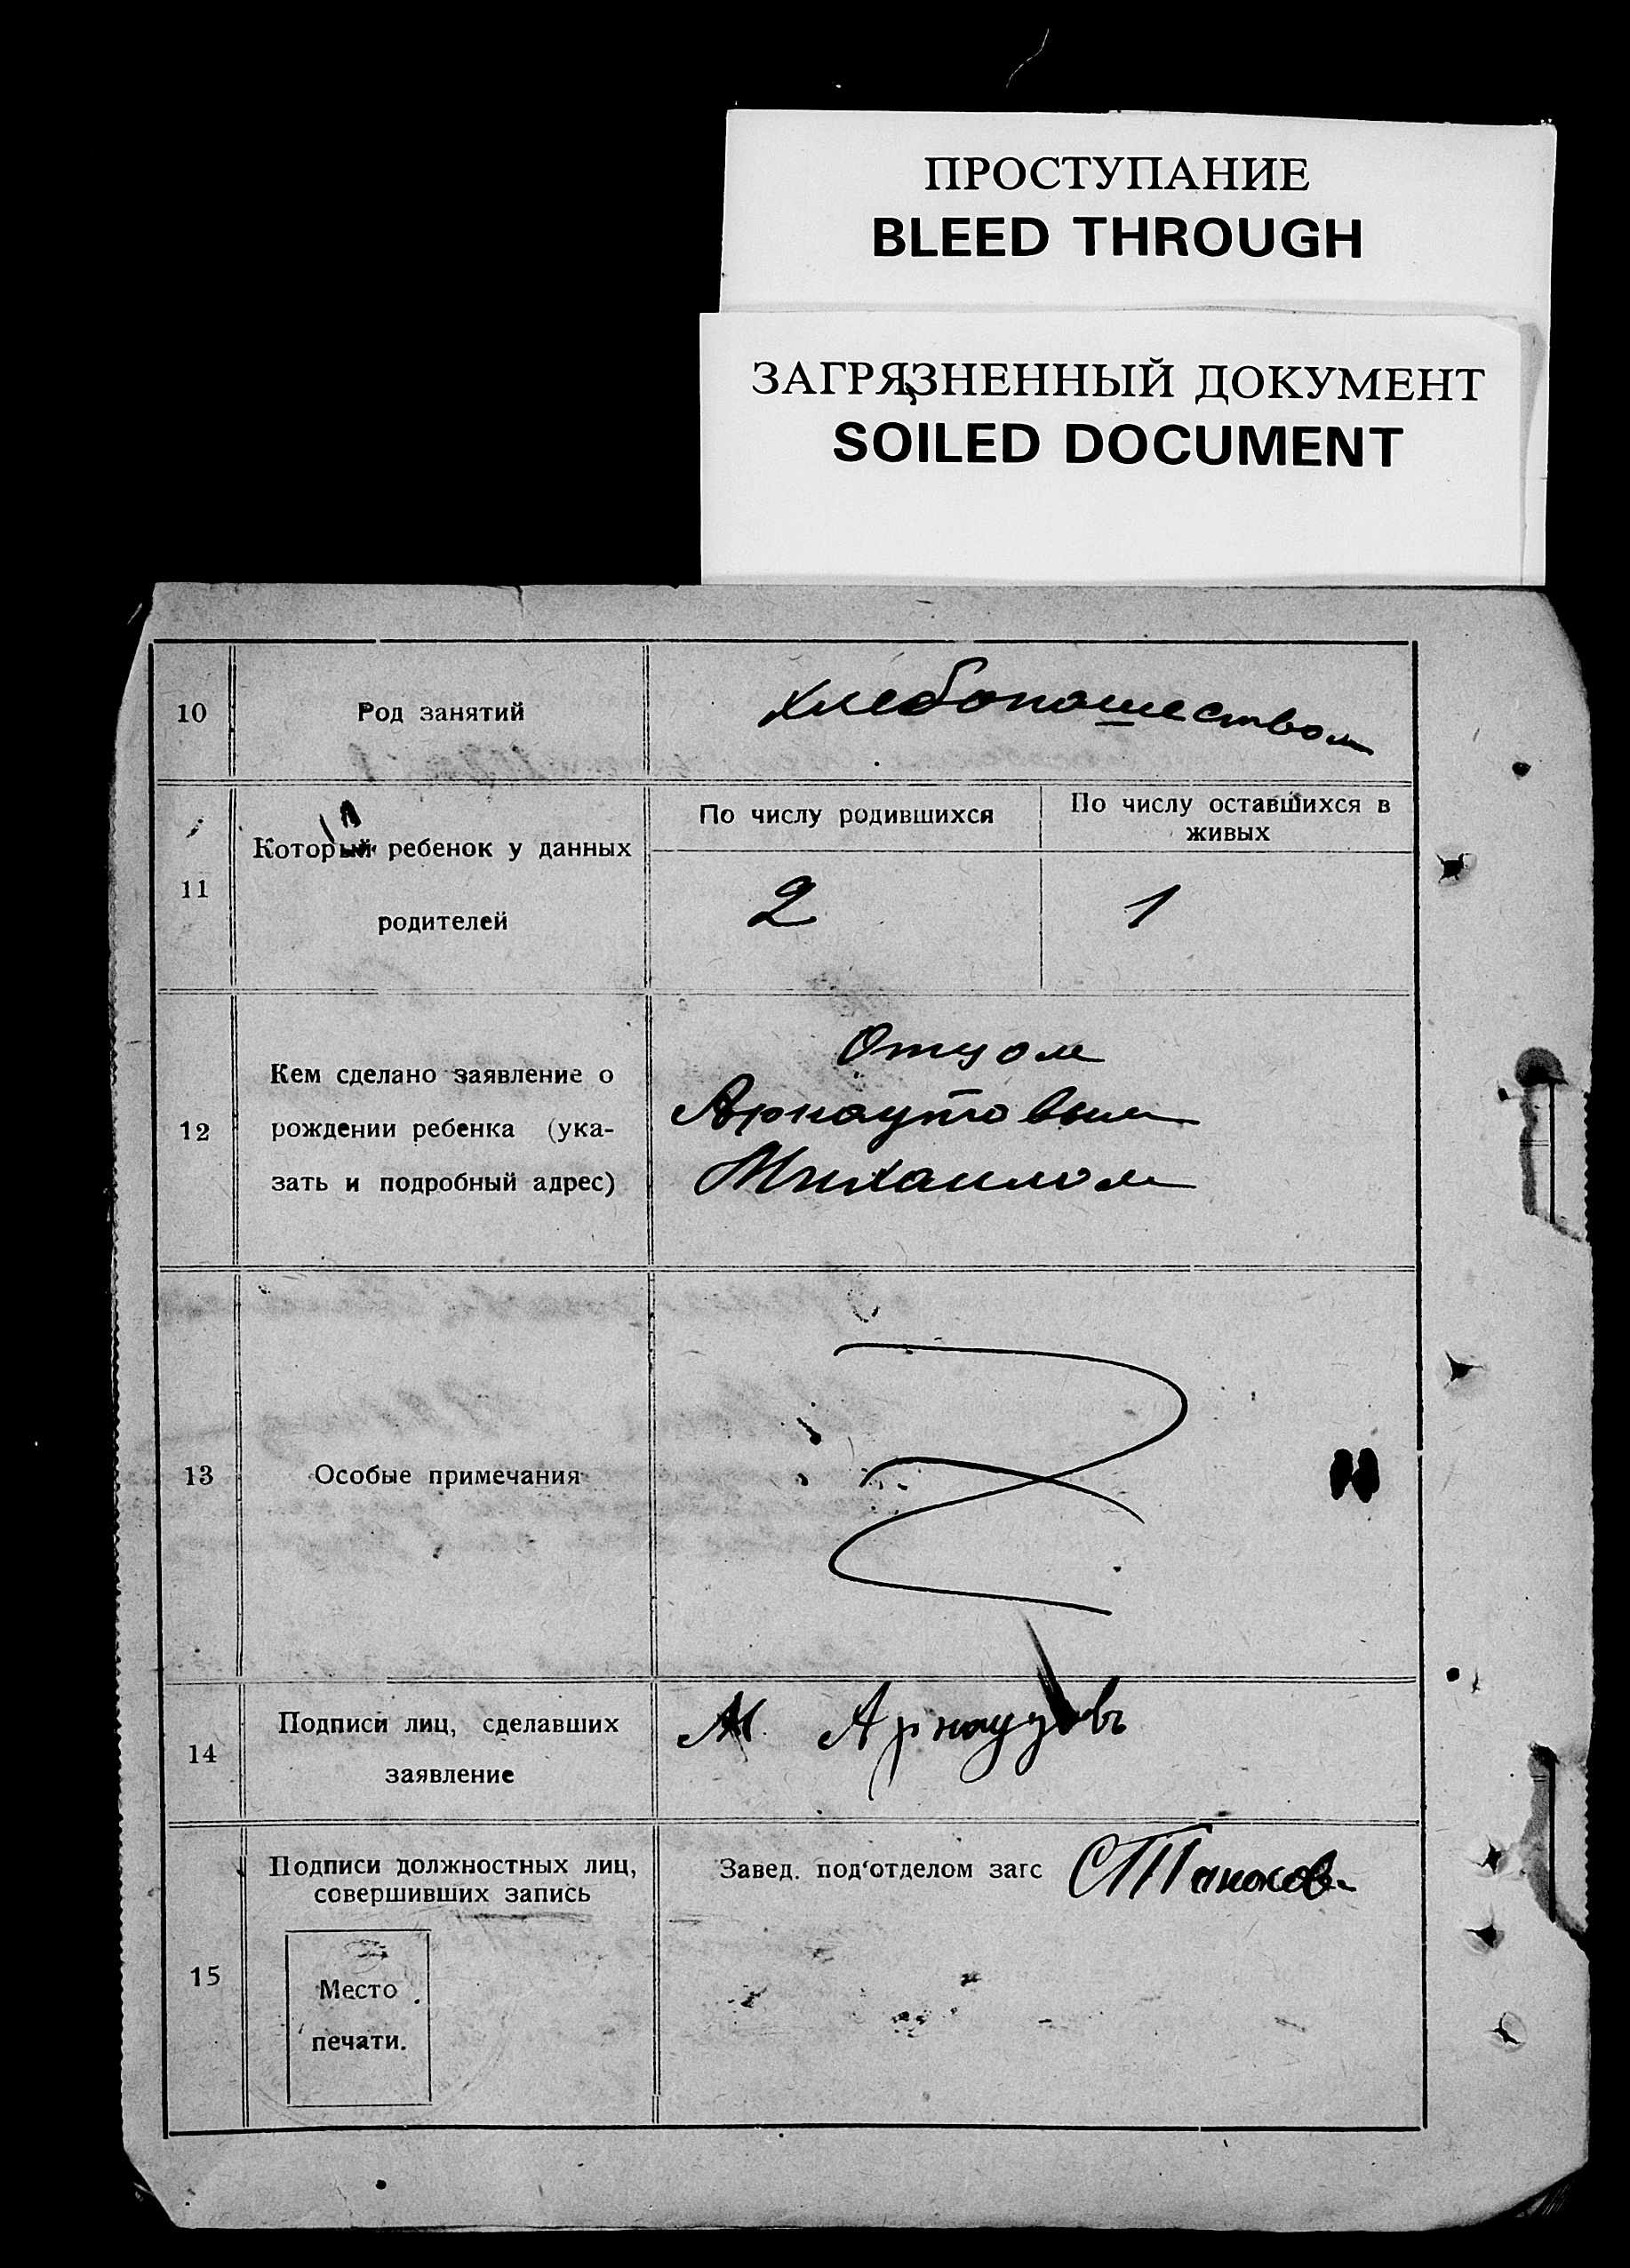 ПРОСТУПАНИЕ
BLEED THROUGH
ЗАГРЯЗНЕННЫЙ ДОКУМЕНТ
SOILED DOCUMENT
10 Род занятий хлебопашеством
11 Который ребенок у данных родителей
По числу родившихся По числу оставшихся в живых
2 1
12 Кем сделано заявление о
рождении ребенка (ука-
зать и подробный адрес)
Отцом
Арнаутовым
Михаилом
13 Особые примечания
14 Подписи лиц, сделавших
заявление
М. Арнаутовъ
15 Подписи должностных лиц,
совершивших запись
Завед. под'отделом загс
Место
печати.